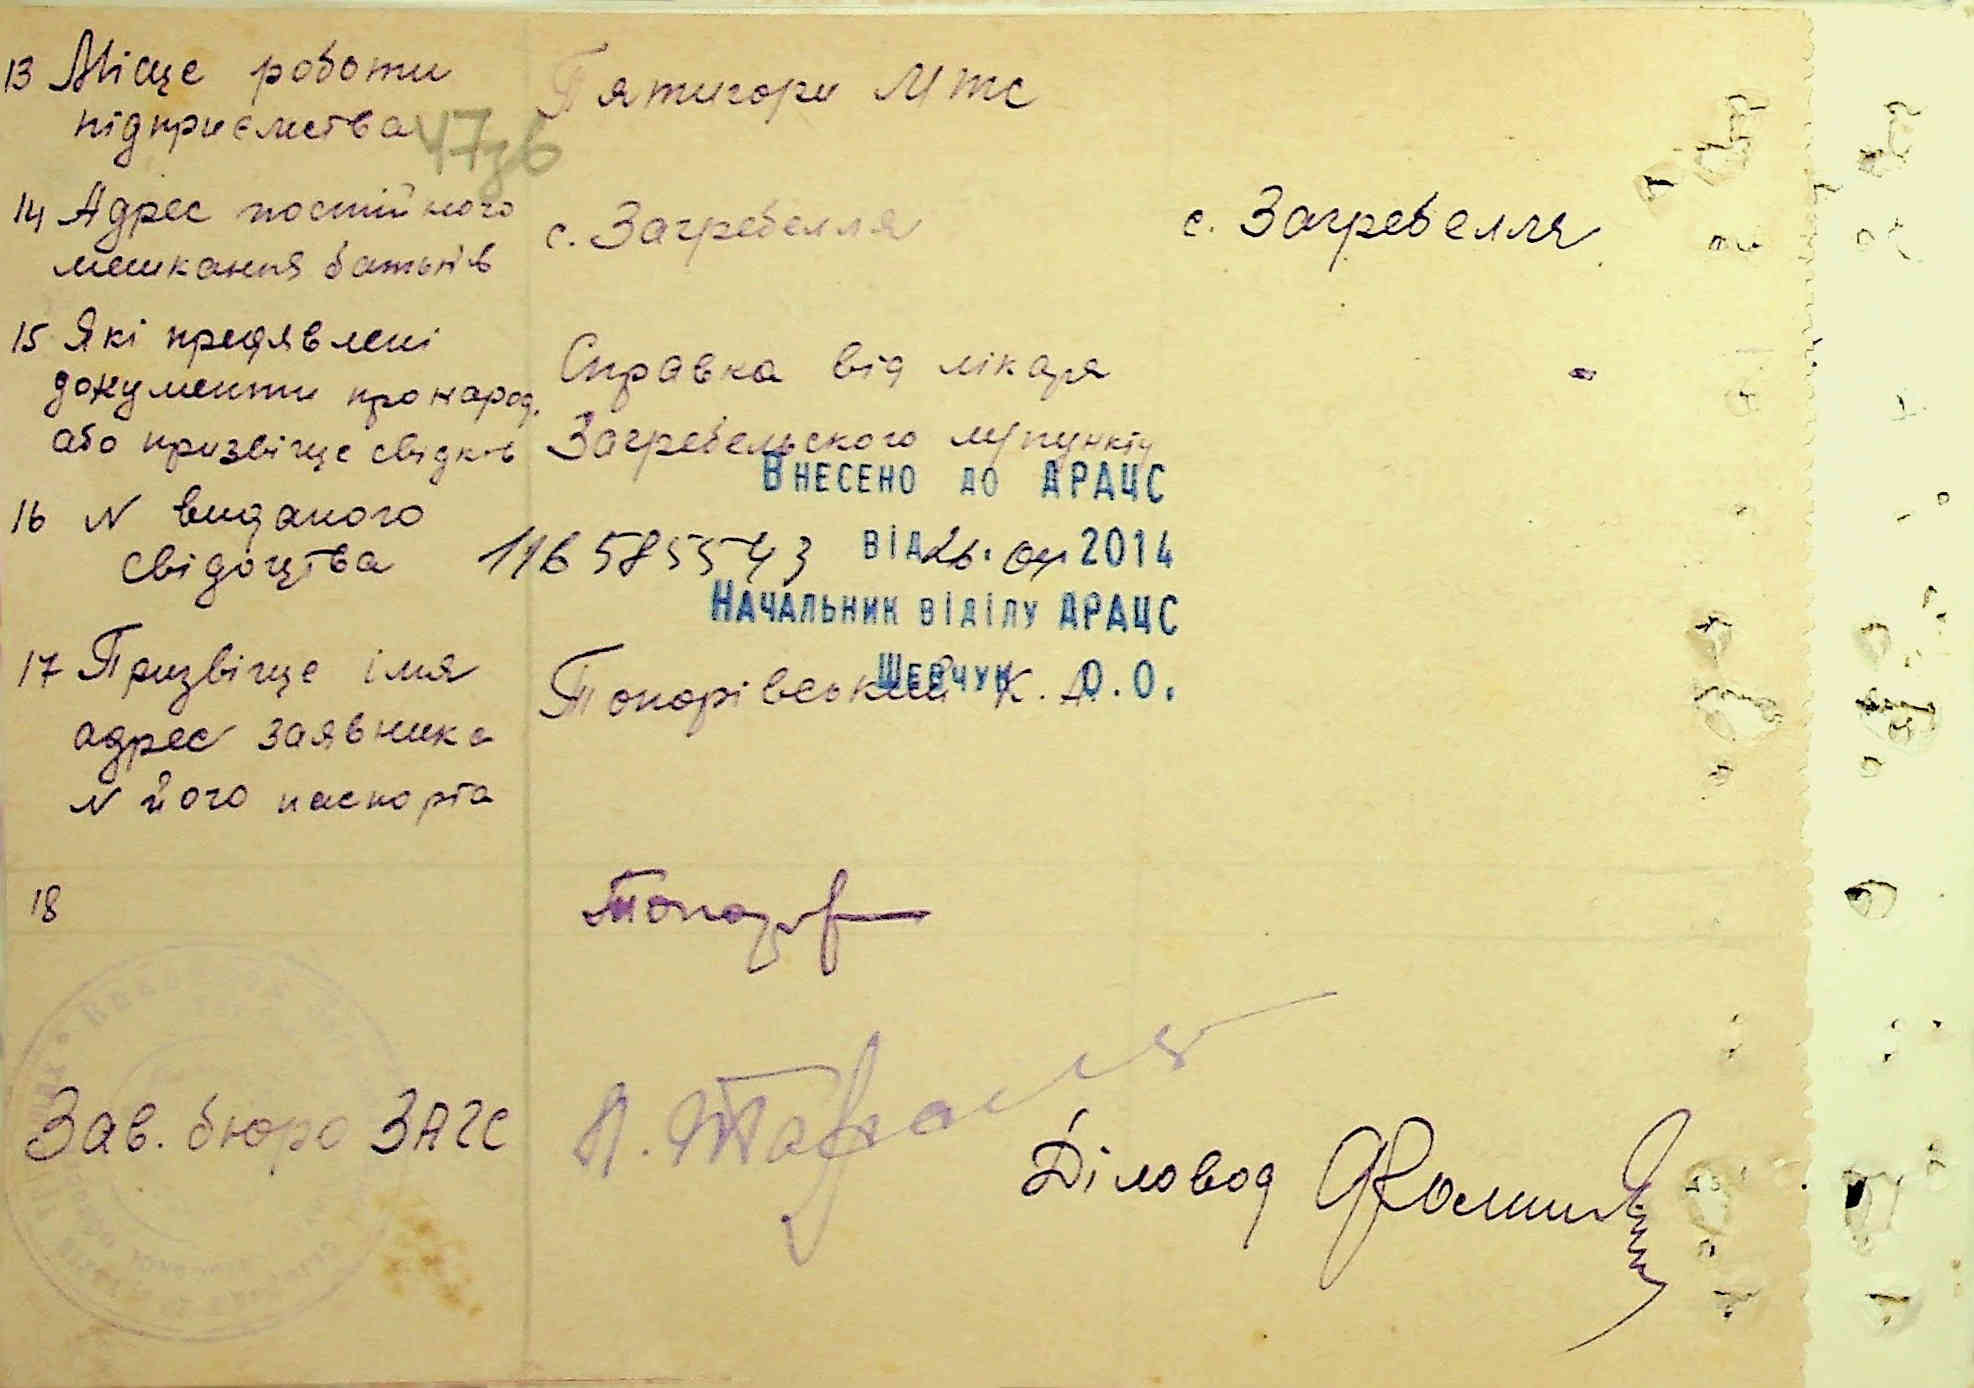 13 Місце роботи
підприємства
Пятигори МТС
47зв
14 Адрес постійного
мешкання батьків
с. Загребелля
с. Загребелля
15 Які предявлені
документи про народ.
або призвіще свідків
Справка від лікаря
Загребельського
-
16 N виданого
свідоцтва
ВНЕСЕНО ДО ДРАЦС
1165855543 ВІД 26. 04 2014
НАЧАЛЬНИК ВІДІЛУ ДРАЦС
ШЕВЧУК О.О.
17 Призвіще імя
адрес заявника
N його паспорта
Топорівський К. А.
18
Зав. бюро ЗАГС
Діловод